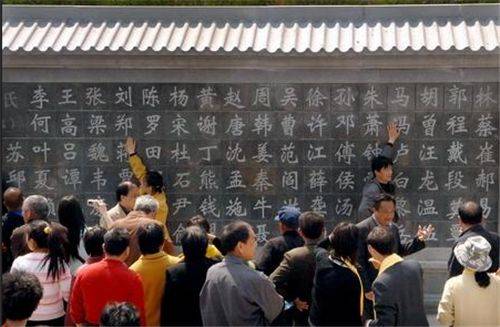 氏 李 王 张 刘 陈 杨 黄 赵 周 吴 徐 孙 朱 马 胡 郭 林
何 高 梁 郑 罗 宋 谢 唐 韩 曹 许 邓 萧 曾 程 蔡
苏 叶 吕 魏 蒋 田 杜 丁 沈 姜 范 江 傅 钟 卢 汪 戴 崔
夏 谭 石 熊 孟 秦 阎 薛 侯 白 龙 段 郝
尹 钱 牛 洪 龚 温